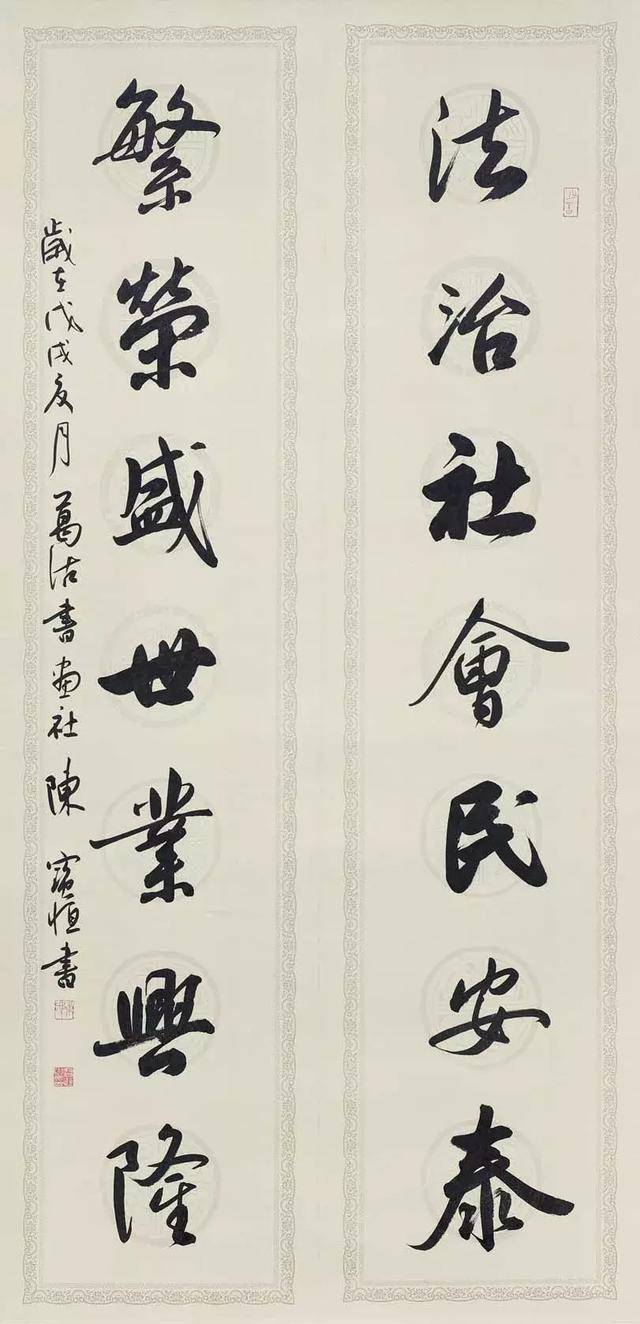 法治社會民安泰
繁榮盛世業興隆
歲在戊戌夏月葛沽書画社陳寶恒書